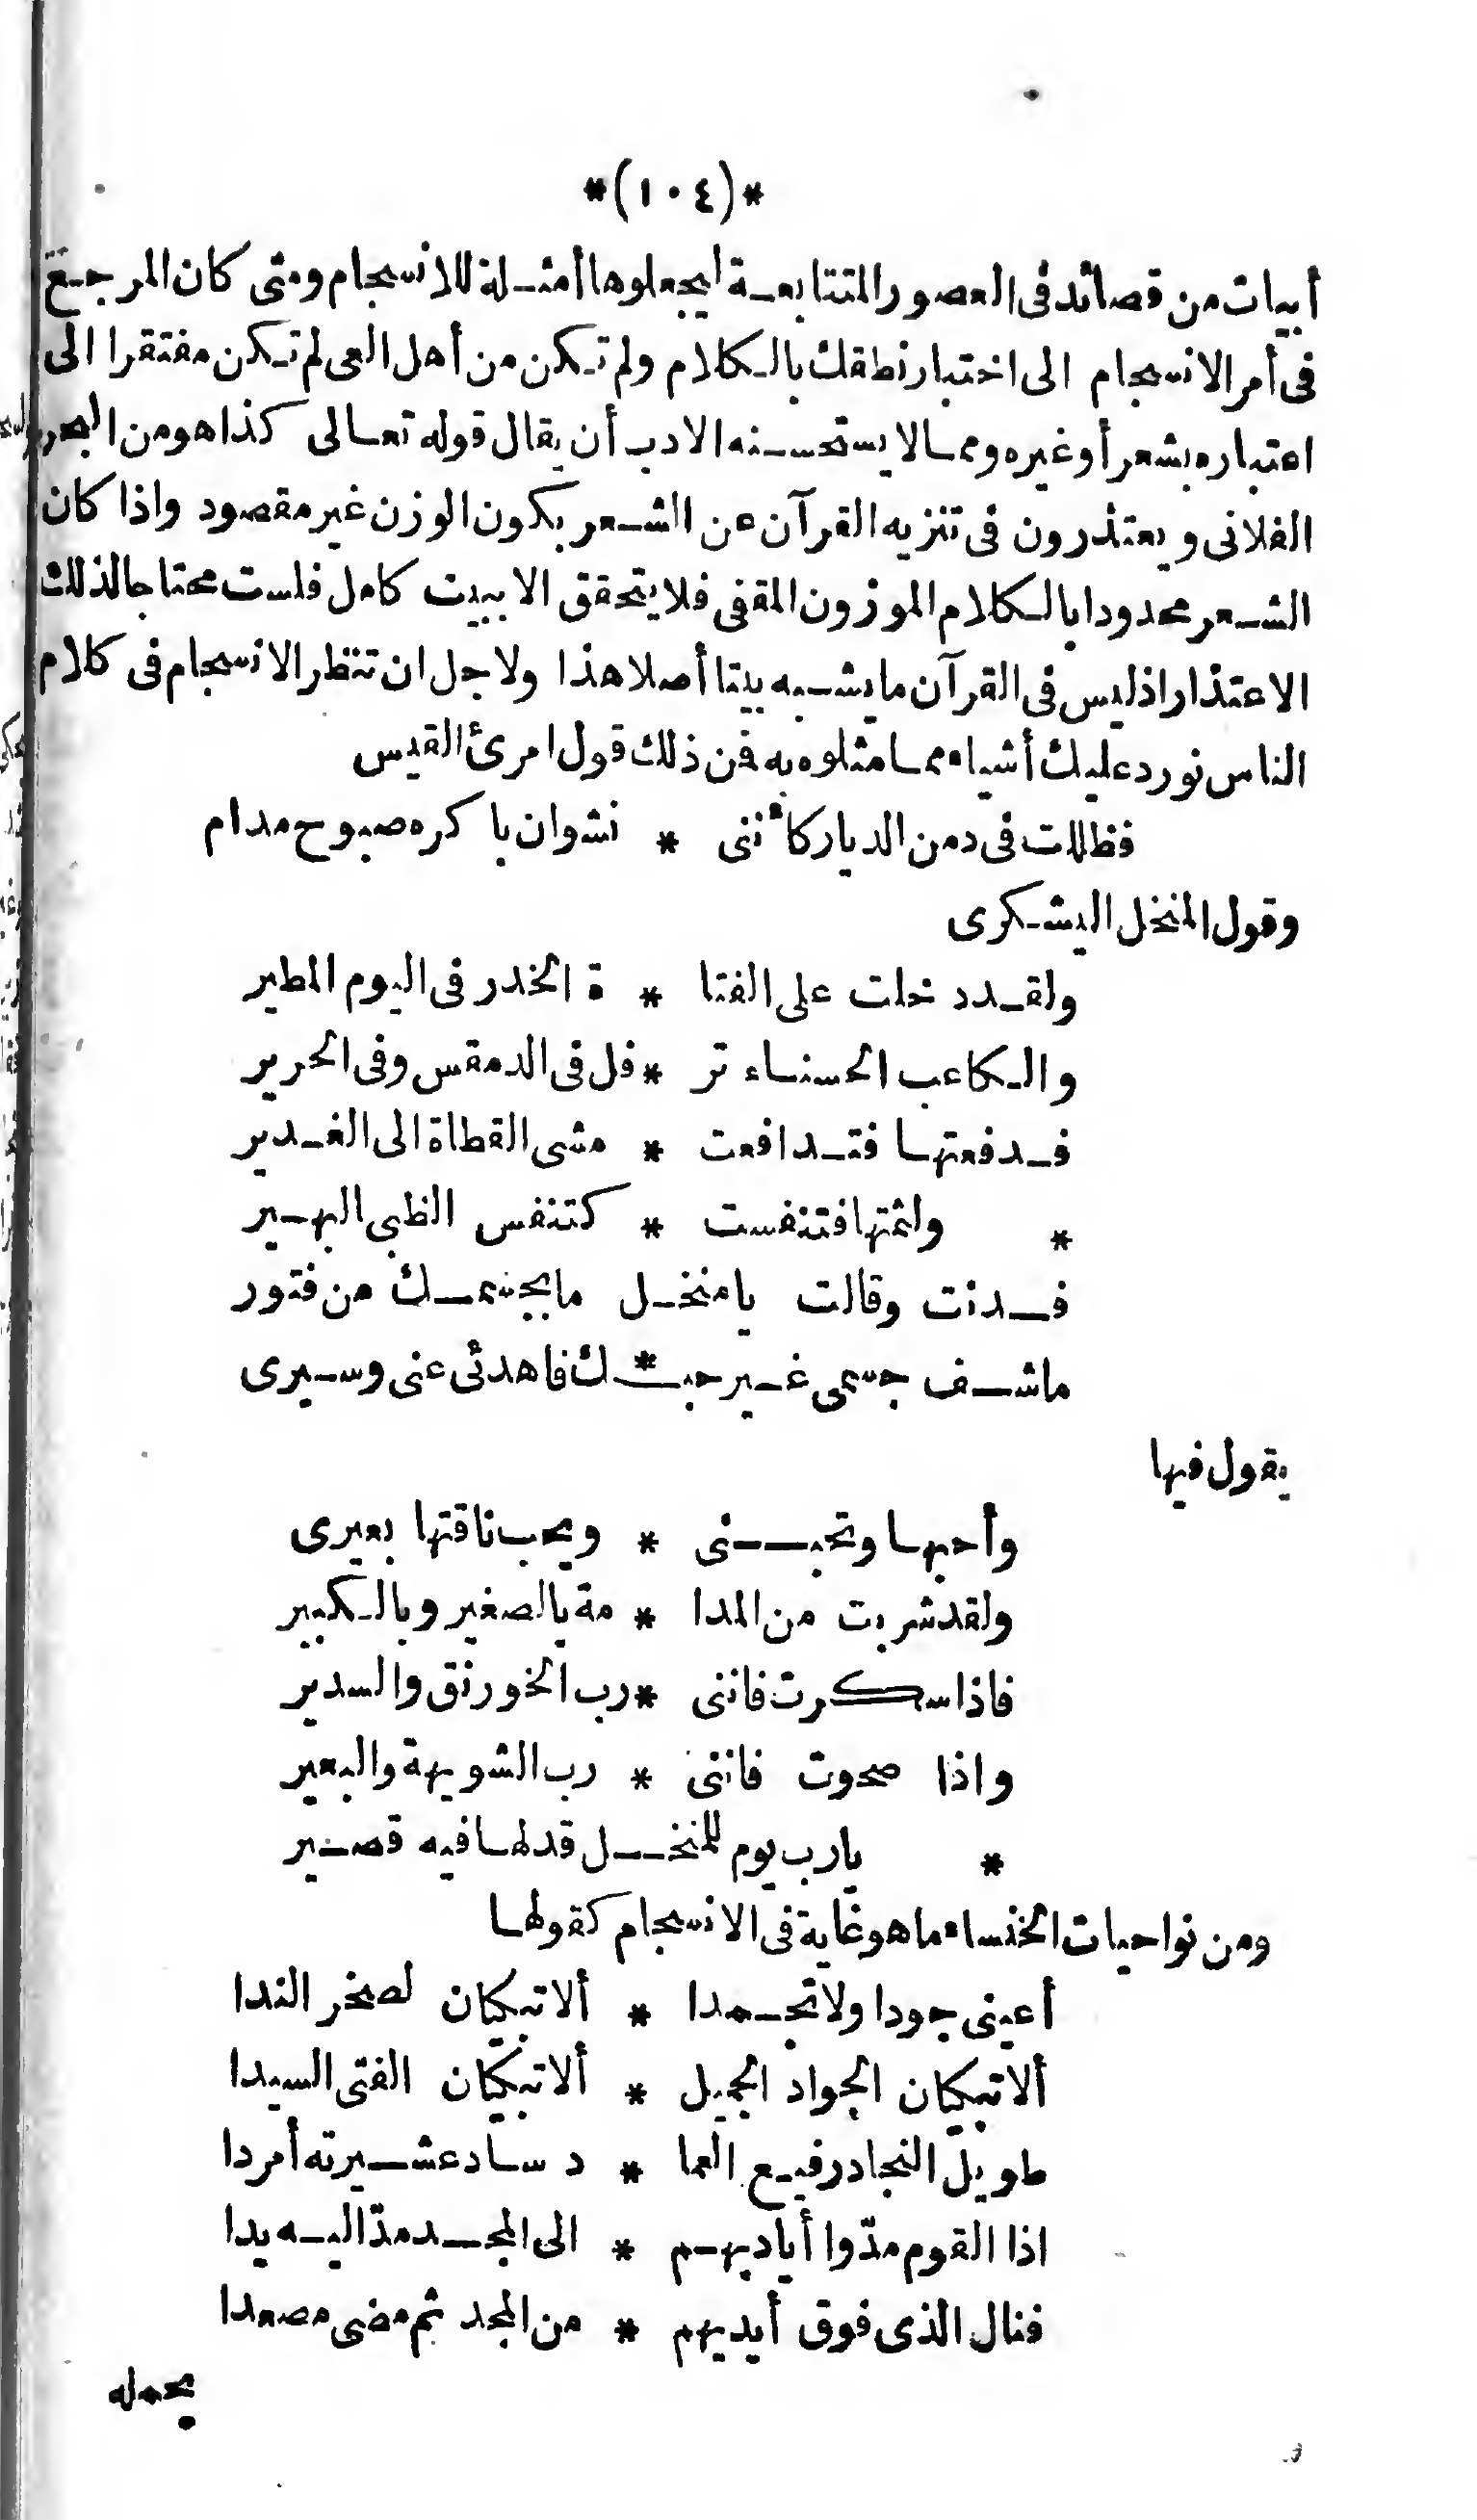 *(١٠٤)*
أبيات من قصائد فى العصور المتتابعة ليجعلوها أمثلة للانسجام ومتى كان المرجع
فى أمر الانسجام الى اختبار نطقك بالكلام ولم تكن من أهل العى لم تكن مفتقرا الى
اعتباره بشعر أو غيره ومما لا يستحسنه الادب أن يقال قوله تعالى كذا هو من البحر
الفلانى ويعتذرون فى تنزيه القرآن عن الشعر بكون الوزن غير مقصود واذا كان
الشعر محدودا بالكلام الموزون المقفى فلا يتحقق الا ببيت كامل فلست محتاجا لذلك
الاعتذار اذ ليس فى القرآن ما يشبه بيتا أصلا هذا ولاجل ان تنظر الانسجام فى كلام
الناس نورد عليك أشياء مما مثلوه به فمن ذلك قول امرئ القيس
فظللت فى دمن الديار كأننى * نشوان باكره صبوح مدام
وقول المنخل اليشكرى
ولقد دخلت على الفتا * ة الخدر فى اليوم المطير
والكاعب الحسناء تر * فل فى الدمقس وفى الحرير
فدفعتها فتدافعت * مشى القطاة الى الغدير
* ولثمتها فتنفست * كتنفس الظبى البهير
فدنت وقالت يا منخل ما بجسمك من فتور
ما شف جسمى غير حبـ * ك فاهدئى عنى وسيرى
يقول فيها
وأحبها وتحبنى * ويحب ناقتها بعيرى
ولقد شربت من المدا * مة بالصغير وبالكبير
فاذا سكرت فاننى * رب الخورنق والسدير
واذا صحوت فاننى * رب الشويهة والبعير
* يا رب يوم للمنخل قد لها فيه قصير
ومن نواحيات الخنساء ما هو غاية فى الانسجام كقولها
أعينى جودا ولا تجمدا * ألا تبكيان لصخر الندا
ألا تبكيان الجواد الجميل * ألا تبكيان الفتى السيدا
طويل النجاد رفيع العما * د ساد عشيرته أمردا
اذا القوم مدّوا أياديهم * الى المجد مدّ اليه يدا
فنال الذى فوق أيديهم * من المجد ثم مضى مصعدا
يحمله